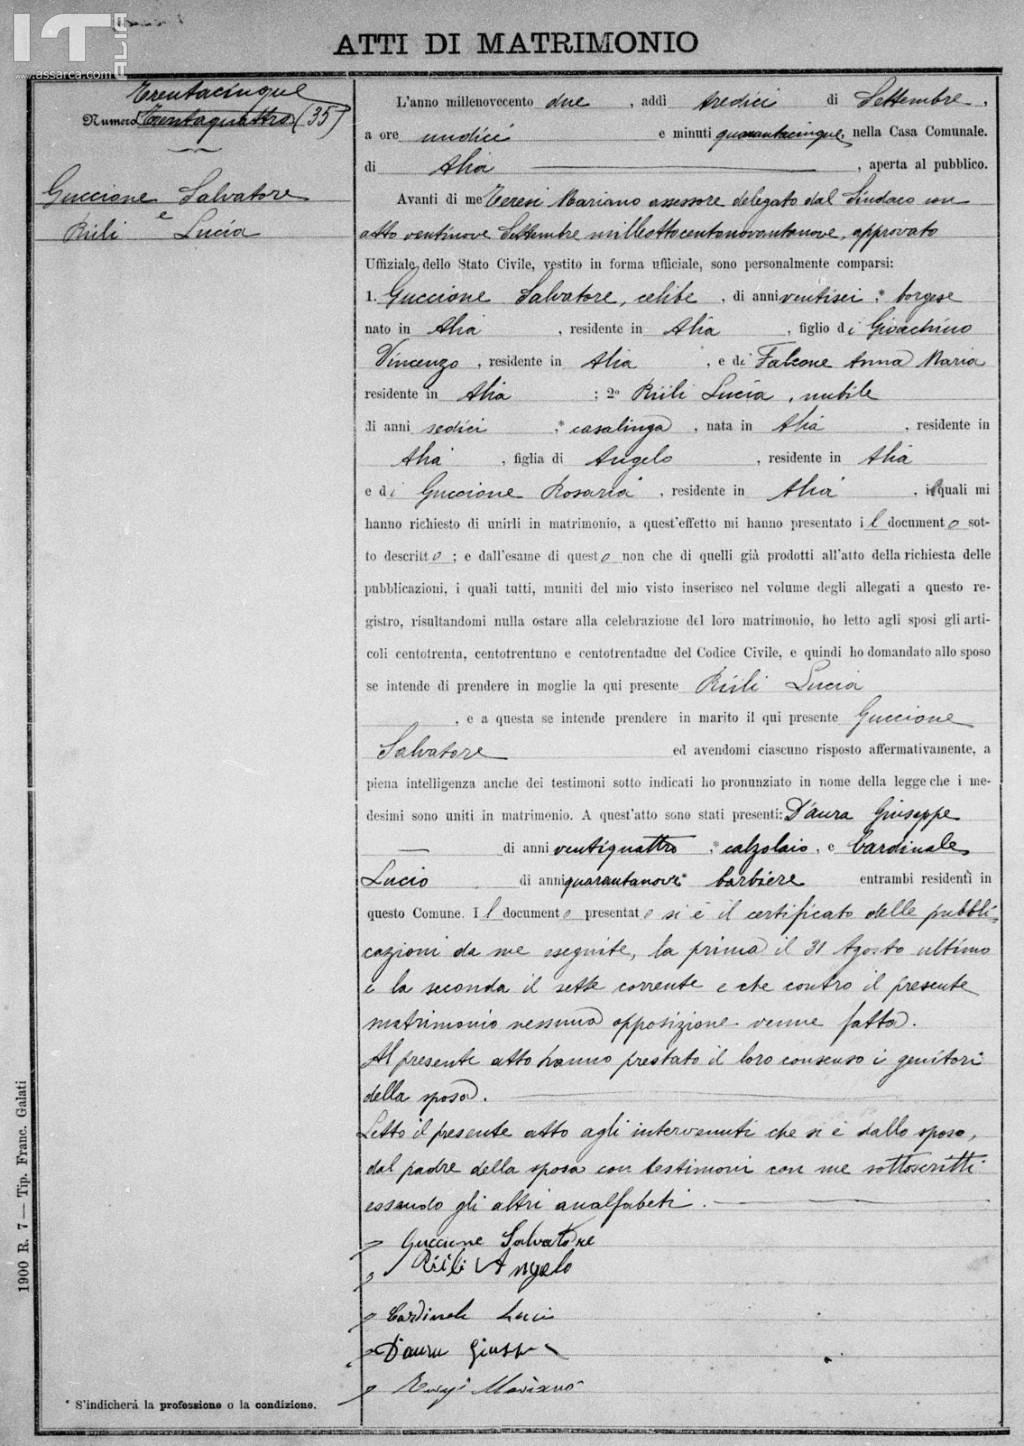 ITALIA
www.assarca.com
ATTI DI MATRIMONIO
Trentacinque
Numero Trentaquattro (35)
Guccione Salvatore
e
Riili Lucia
L'anno millenovecento due, addi tredici di Settembre,
a ore undici e minuti quarantacinque, nella Casa Comunale.
di Alia, aperta al pubblico.
Avanti di me Teresi Mariano assessore delegato dal Sindaco con
atto ventinove Settembre milleottocentonovantanove, approvato
Uffiziale dello Stato Civile, vestito in forma ufficiale, sono personalmente comparsi:
1. Guccione Salvatore, celibe, di anni ventisei, * borgese
nato in Alia, residente in Alia, figlio di Gioachino
Vincenzo, residente in Alia, e di Falcone Anna Maria
residente in Alia; 2º Riili Lucia, nubile
di anni sedici, * casalinga, nata in Alia, residente in
Alia, figlia di Angelo, residente in Alia
e di Guccione Rosaria, residente in Alia, i quali mi
hanno richiesto di unirli in matrimonio, a quest'effetto mi hanno presentato il documento sot-
to descritto; e dall'esame di questo non che di quelli già prodotti all'atto della richiesta delle
pubblicazioni, i quali tutti, muniti del mio visto inserisco nel volume degli allegati a questo re-
gistro, risultandomi nulla ostare alla celebrazione del loro matrimonio, ho letto agli sposi gli arti-
coli centotrenta, centotrentuno e centotrentadue del Codice Civile, e quindi ho domandato allo sposo
se intende di prendere in moglie la qui presente Riili Lucia
, e a questa se intende prendere in marito il qui presente Guccione
Salvatore ed avendomi ciascuno risposto affermativamente, a
piena intelligenza anche dei testimoni sotto indicati ho pronunziato in nome della legge che i me-
desimi sono uniti in matrimonio. A quest'atto sono stati presenti: D'aura Giuseppe
di anni ventiquattro, * calzolaio, e Cardinale
Lucio di anni quarantanove * barbiere entrambi residenti in
questo Comune. Il documento presentato si è il certificato delle pubbli
cazioni da me eseguite, la prima il 31 Agosto ultimo
e la seconda il sette corrente e che contro il presente
matrimonio nessuna opposizione venne fatta.
Al presente atto hanno prestato il loro consenso i genitori
della sposa.
Letto il presente atto agli intervenuti che si è dallo sposo,
dal padre della sposa con testimoni con me sottoscritti
essendo gli altri analfabeti.
Guccione Salvatore
Riili Angelo
Cardinale Lucio
D'aura Giuseppe
Teresi Mariano
* S'indicherà la professione o la condizione.
1900 R. 7 — Tip. Franc. Galati